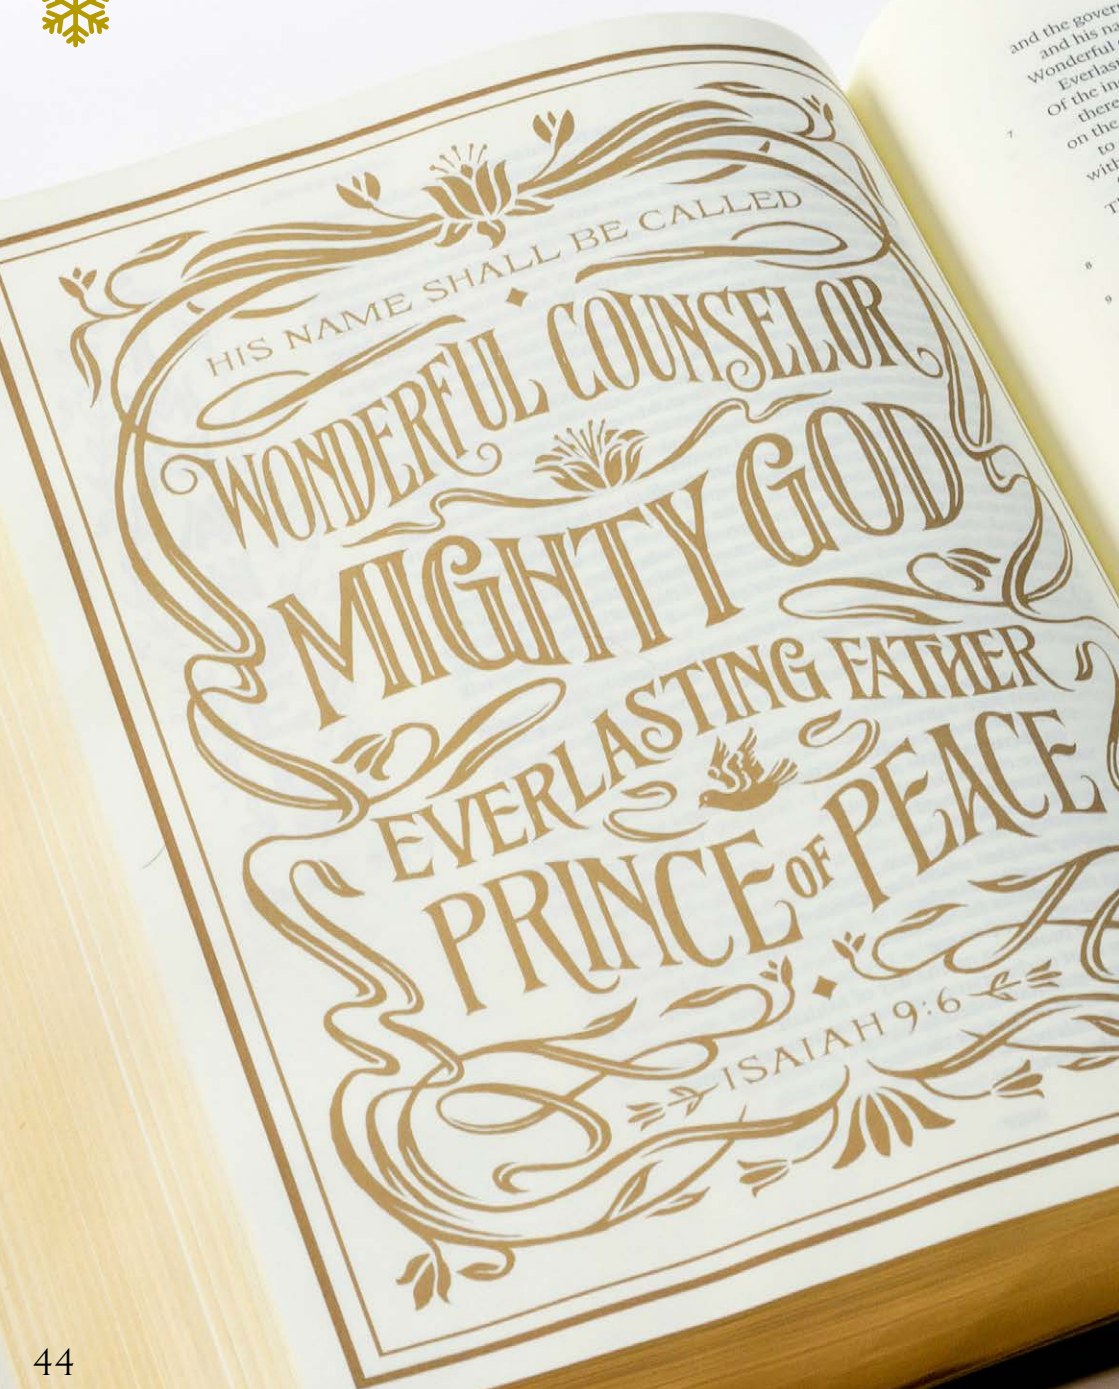 HIS NAME SHALL BE CALLED
WONDERFUL COUNSELOR
MIGHTY GOD
EVERLASTING FATHER
PRINCE OF PEACE
ISAIAH 9:6
and the
and his
Wonderful
Of the
there
7
on the
to
8
9
44